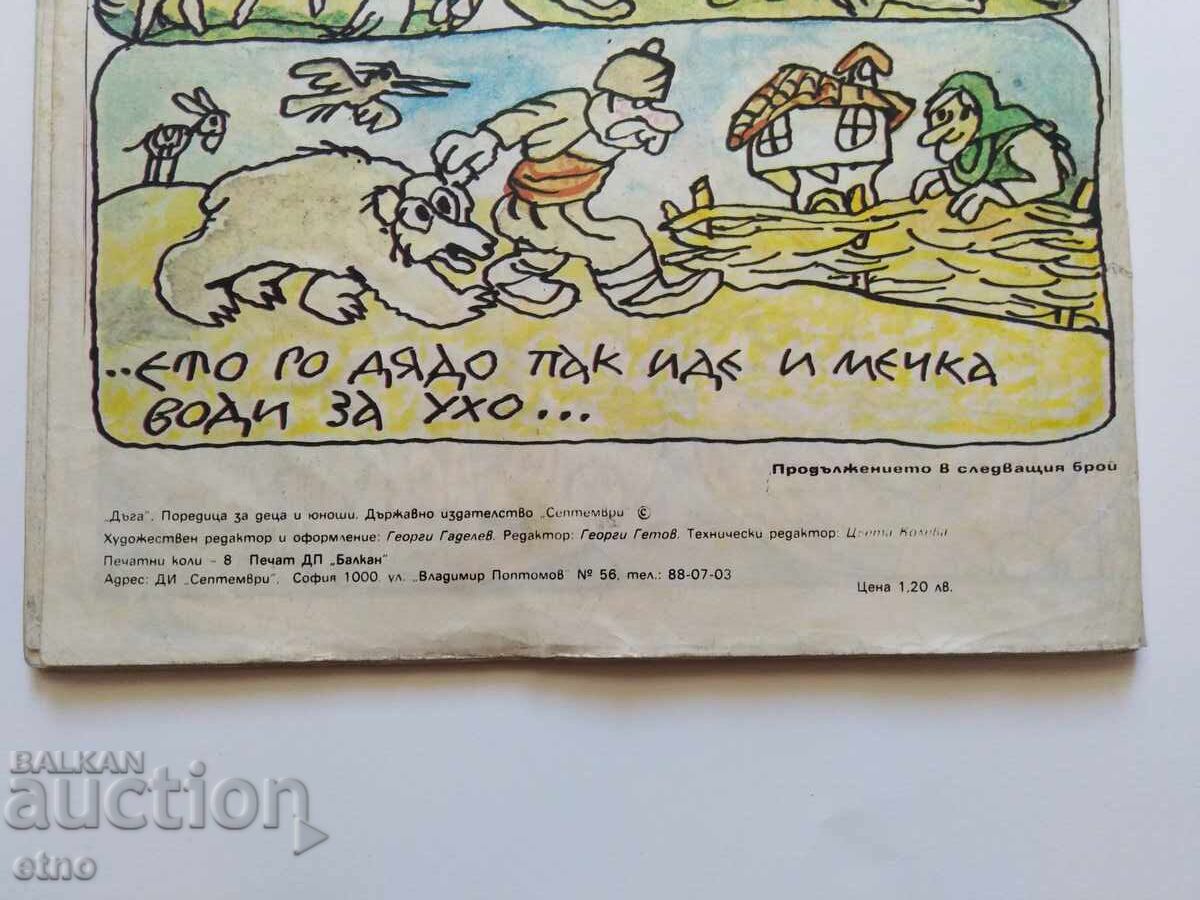 ..ЕТО ГО ДЯДО ПАК ИДЕ И МЕЧКА
ВОДИ ЗА УХО...
Продължението в следващия брой
„Дъга". Поредица за деца и юноши. Държавно издателство „Септември" ©
Художествен редактор и оформление: Георги Гаделев. Редактор: Георги Гетов. Технически редактор: Цвета Колева
Печатни коли - 8 Печат ДП „Балкан"
Адрес: ДИ „Септември", София 1000 ул. „Владимир Поптомов" № 56, тел.: 88-07-03
Цена 1,20 лв.
BALKAN
auction
etno